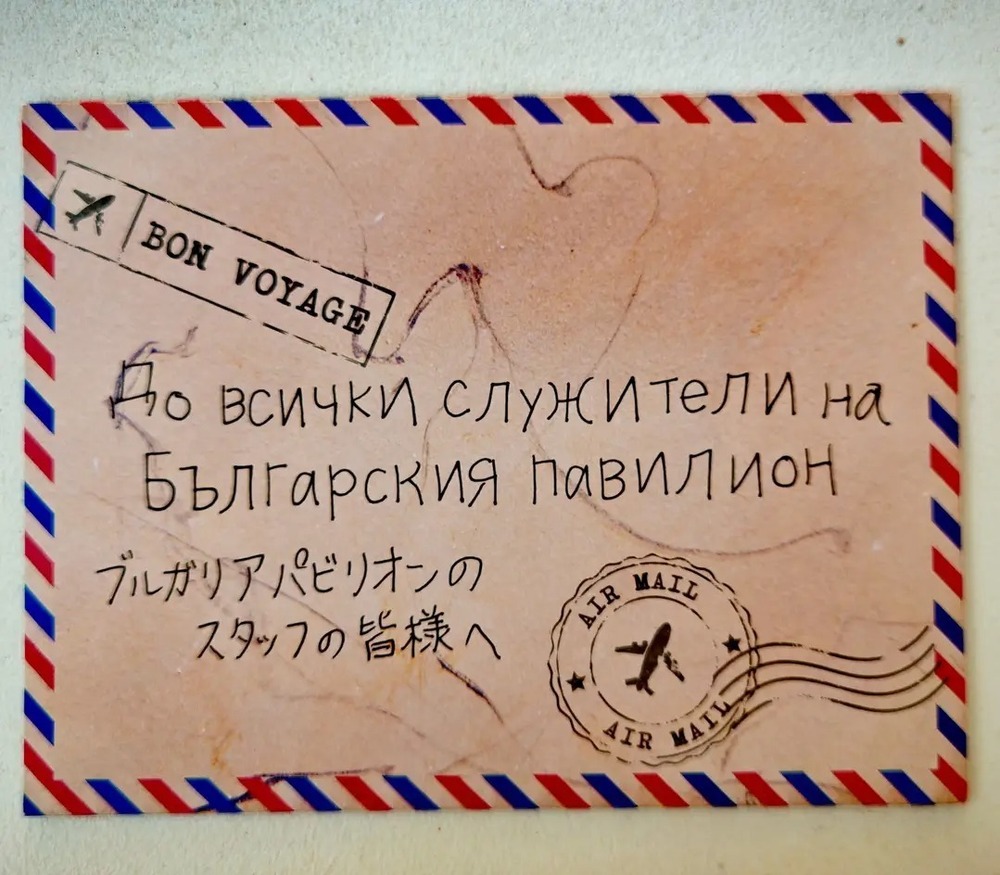 BON VOYAGE
До всички служители на
Българския павилион
ブルガリアパビリオンの
スタッフの皆様へ
AIR MAIL
AIR MAIL